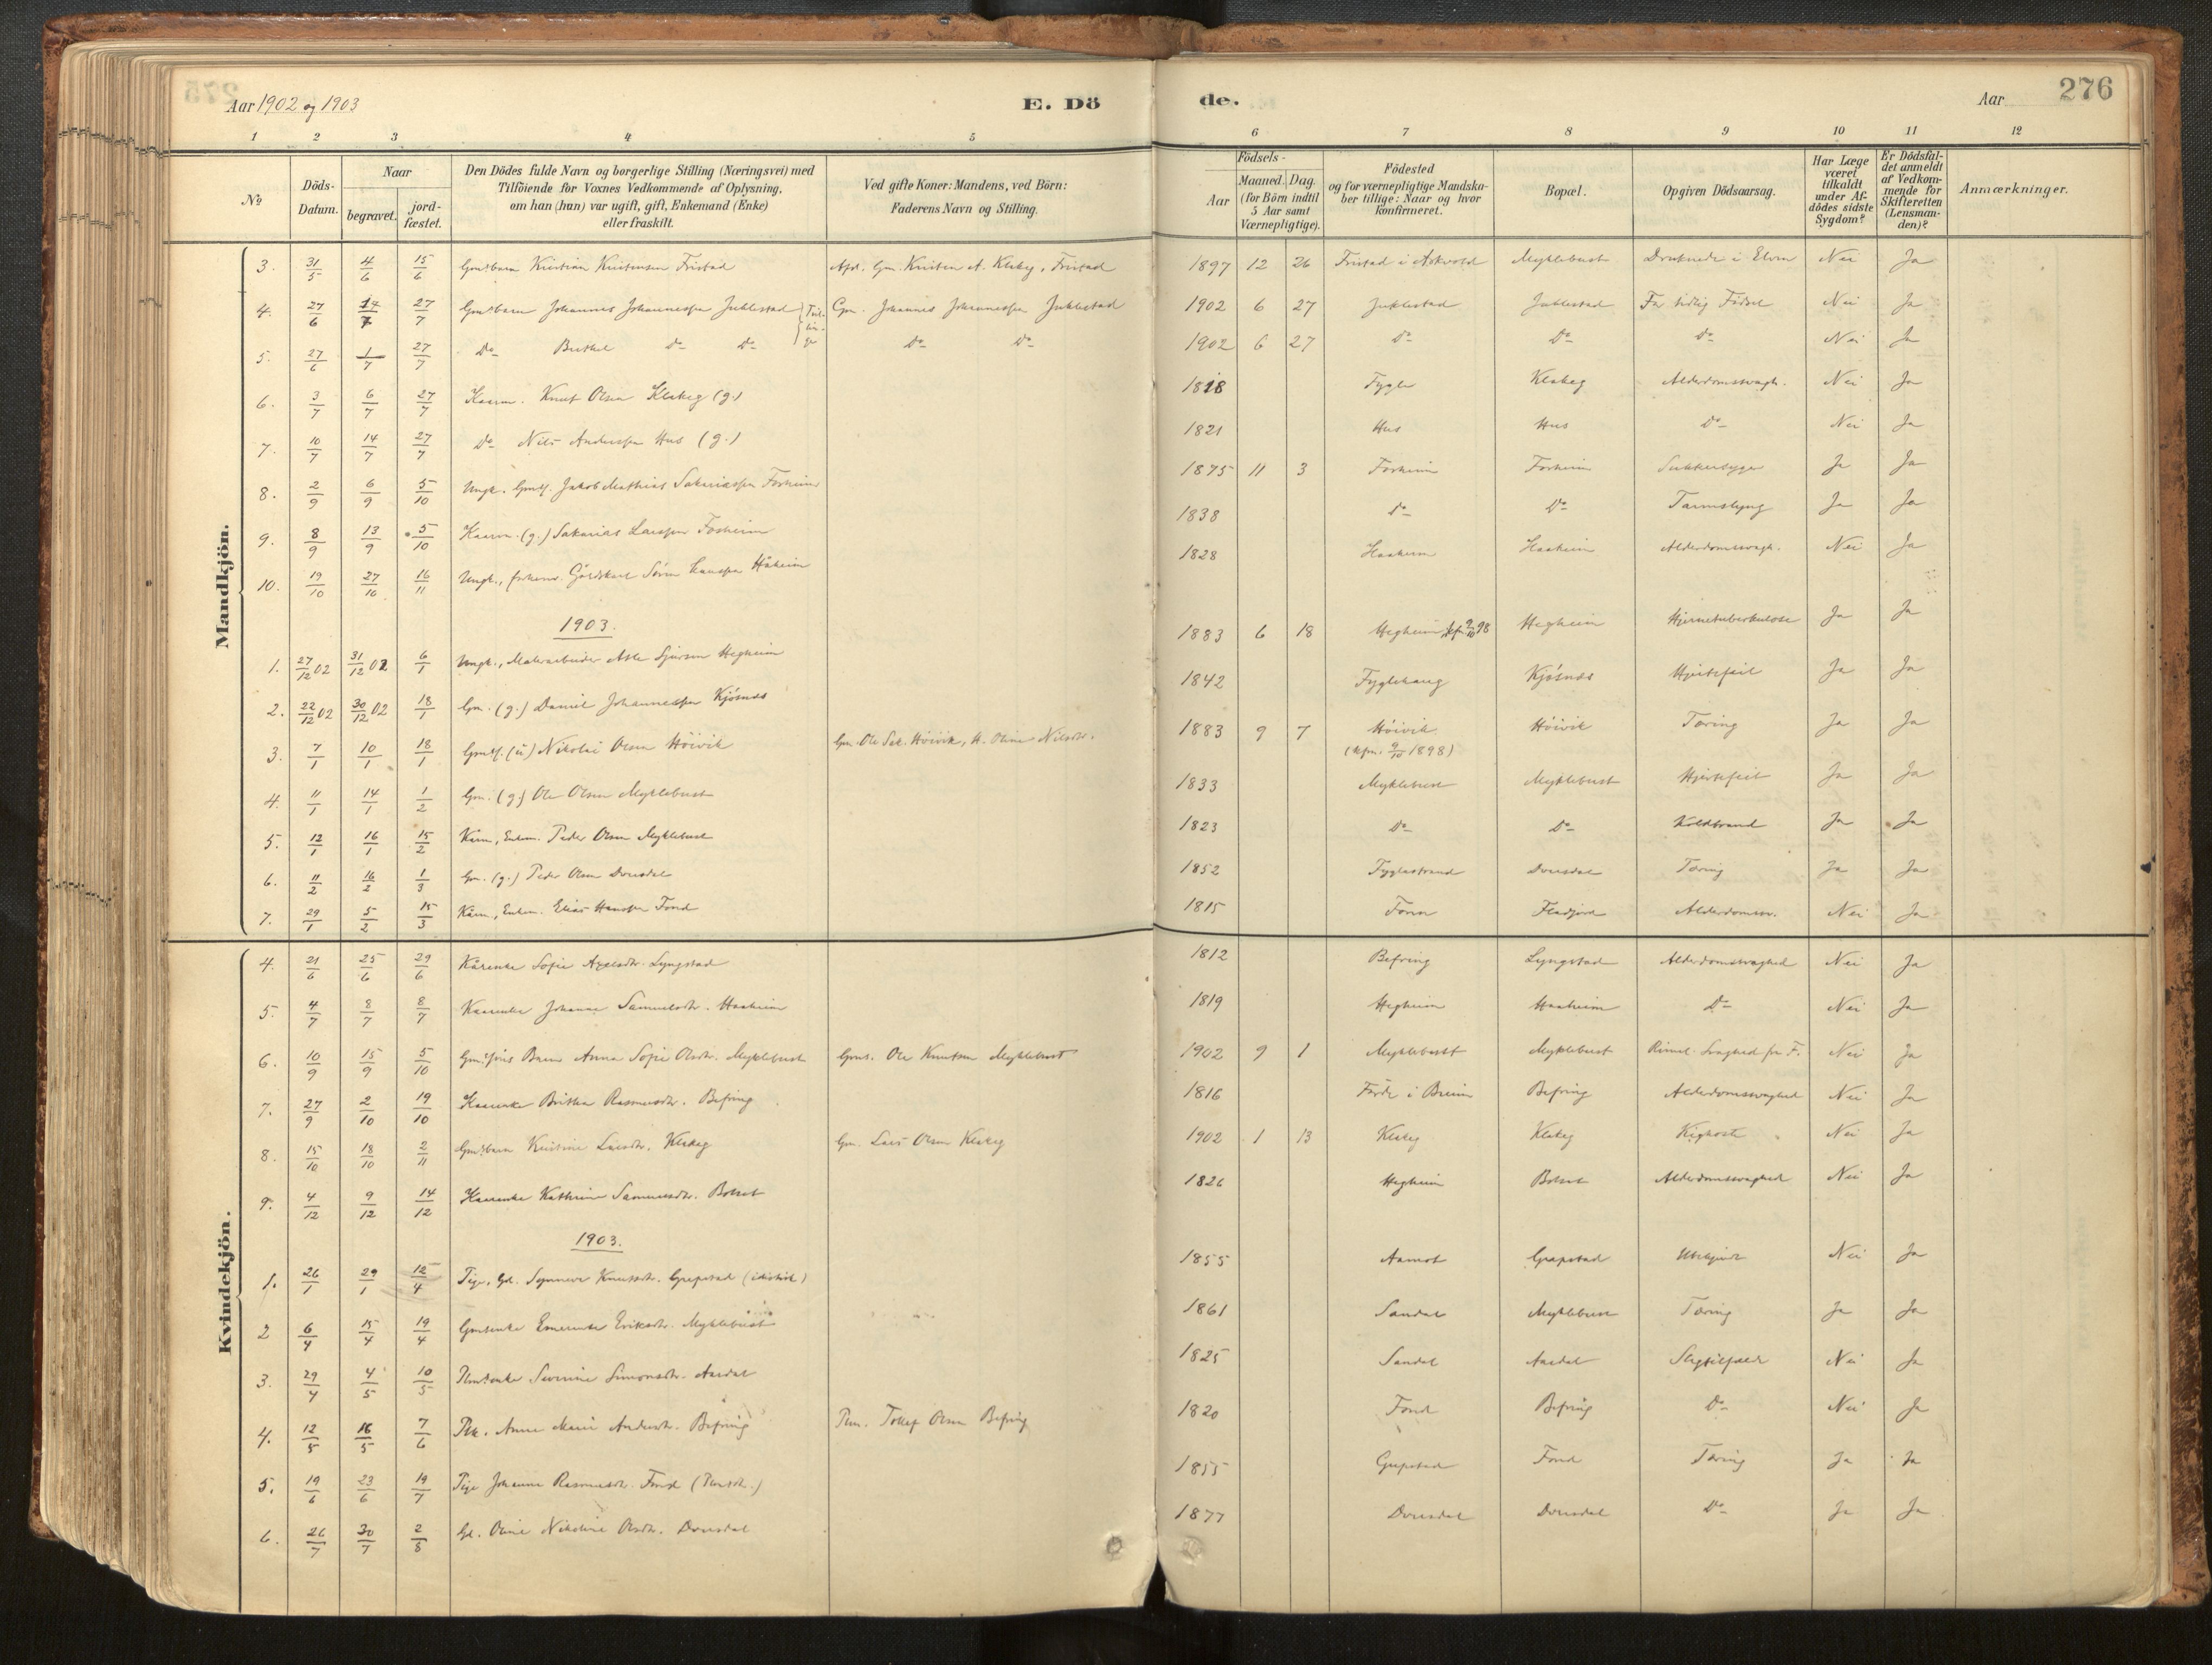 Aar 1902 og 1903 E. Dö de. Aar 276
1 2 3 4 5 6 7 8 9 10 11 12
No. Döds-Datum. Naar begravet. jordfæstet. Den Dödes fulde Navn og borgerlige Stilling (Næringsvei) med Tilföiende for Voxnes Vedkommende af Oplysning, om han (hun) var ugift, gift, Enkemand (Enke) eller fraskilt. Ved gifte Koner: Mandens, ved Börn: Faderens Navn og Stilling. Födsels- Aar Maaned. Dag. (for Börn indtil 5 Aar samt Værnepligtige). Födested og for værnepligtige Mandskaber tillige: Naar og hvor konfirmeret. Bopæl. Opgiven Dödsaarsag. Har Læge været tilkaldt under Afdödes sidste Sygdom? Er Dödsfaldet anmeldt af Vedkommende for Skifteretten (Lensmanden)? Anmærkninger.
Mandkjön.
3. 31/5 4/6 15/6 Gmdsbarn Kristian Kristensen Fristad Afd. Gm. Kristen A. Klakeg, Fristad 1897 12 26 Fristad i Askvold Myklebust Druknede i Elven Nei Ja
4. 27/6 27/7 Gmdsbarn Johannes Johannessen Juklestad Tvillinger Gm. Johannes Johannessen Juklestad 1902 6 27 Juklestad Juklestad For tidlig Födsel Nei Ja
5. 27/6 1/7 27/7 Do Do Do Do Do 1902 6 27 Do Do Do Nei Ja
6. 3/7 6/7 27/7 Kaarm. Knut Olsen Klakeg (g.) 1818 Fygle Klakeg Alderdomssvagh. Nei Ja
7. 10/7 14/7 27/7 Do Nils Anderssen Hus (g.) 1821 Hus Hus Do Nei Ja
8. 2/9 6/9 5/10 Ungk. Gmds. Jakob Mathias Sakariassen Forheim 1875 11 3 Forheim Forheim Sukkersyge Ja Ja
9. 8/9 13/9 5/10 Kaarm. (g.) Sakarias Larssen Forheim 1838 Do Do Tarmslyng Ja Ja
10. 19/10 27/10 16/11 Ungk., Gårdskarl Sörn Håheim 1828 Haaheim Haaheim Alderdomssvagh. Nei Ja
1903.
1. 27/12 02 31/12 02 6/1 Ungk., Malerarbeider Atle Sjursen Hegheim 1883 6 18 Hegheim, kfm. 9/10 98 Hegheim Hjernetuberkulose Ja Ja
2. 22/12 02 30/12 02 18/1 Gm. (g.) Daniel Johannessen Kjösnes 1842 Fyglehaug Kjösnes Hjertefeil Ja Ja
3. 7/1 10/1 18/1 Gmds. (u) Nikolai Olsen Höivik Gm. Ole Sak. Höivik, H. Oline Nilsdtr. 1883 9 7 Höivik Höivik Tæring Ja Ja
(kfm. 9/10 1898)
4. 11/1 14/1 1/2 Gm. (g.) Ole Olsen Myklebust 1833 Myklebust Myklebust Hjertefeil Ja Ja
5. 12/1 16/1 15/2 Kårm., Enkem. Peder Olsen Myklebust 1823 Do Do Koldbrand Ja Ja
6. 11/2 16/2 1/3 Gm. (g.) Peder Olsen Dvergsdal 1852 Fyglestrand Dvergsdal Tæring Ja Ja
7. 29/1 5/2 15/3 Kårm., Enkem. Elias Hanssen Fond 1815 Alderdomssv. Nei Ja
Kvindekjön.
4. 21/6 25/6 29/6 Kårenke Sofie Axelsdtr. Lyngstad 1812 Befring Lyngstad Alderdomssvaghed Nei Ja
5. 4/7 8/7 8/7 Kaarenke Johanne Samuelsdtr. Haaheim 1819 Hegheim Haaheim Do Nei Ja
6. 10/9 15/9 5/10 Barn Anna Sofie Olsdtr. Myklebust Ole Knutsen Myklebust 1902 9 1 Myklebust Myklebust Svaghed fra F. Nei Ja
7. 27/9 2/10 19/10 Kaarenke Brithe Rasmusdtr. Befring 1816 Förde i Breim Befring Alderdomssvaghed Nei Ja
8. 15/10 18/10 2/11 Gmdsbarn Kristine Larsdtr. Klakeg Gm. Lars Olsen Klakeg 1902 1 13 Klakeg Klakeg Kighoste Nei Ja
9. 4/12 9/12 14/12 Kaarenke Kathrine Samuelsdtr. Bolset 1826 Hegheim Bolset Alderdomssvaghed Nei Ja
1903.
1. 26/1 29/1 12/4 Pige, Gd. Synneve Knutsdtr. Grepstad (idiotisk) 1855 Aamot Grepstad Ubekjendt Nei Ja
2 6/4 15/4 19/4 Gmdsenke Eriksdtr. Myklebust 1861 Sandal Myklebust Tæring Ja Ja
3. 29/4 4/5 10/5 Severine Simonsdtr. Aardal 1825 Sandal Aardal Slagtilfælde Nei Ja
4. 12/5 16/5 7/6 Anne Marie Andersdtr. Befring Plm. Tollef Olsen Befring 1820 Fond Befring Do Nei Ja
5. 19/6 23/6 19/7 Pige Johanne Rasmusdtr. Fond 1855 Grepstad Fond Tæring Ja Ja
6. 26/7 30/7 2/8 Gd. Oline Nikoline Olsdtr. Dvergsdal 1877 Dvergsdal Dvergsdal Do Ja Ja